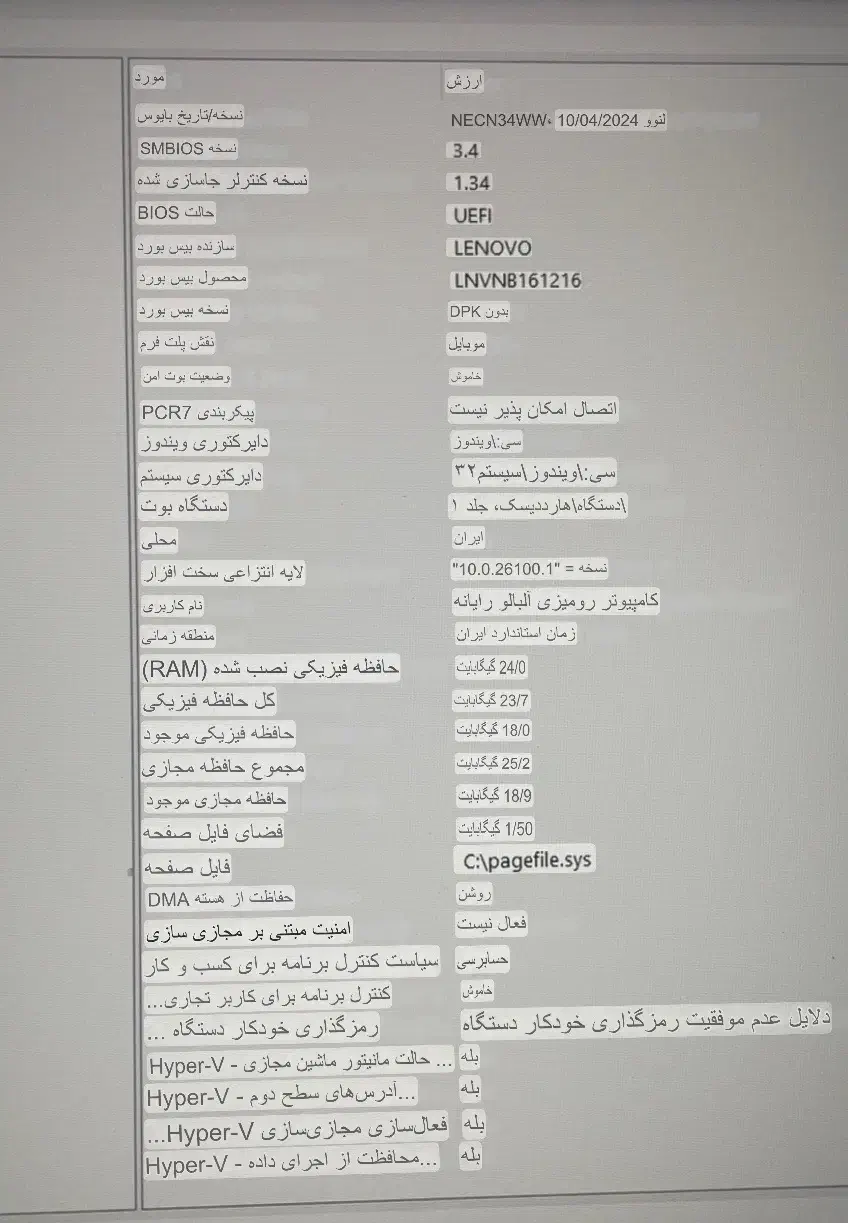 مورد ارزش
نسخه/تاریخ بایوس لنوو NECN34WW، 10/04/2024
نسخه SMBIOS 3.4
نسخه کنترلر جاسازی شده 1.34
حالت BIOS UEFI
سازنده بیس بورد LENOVO
محصول بیس بورد LNVNB161216
نسخه بیس بورد بدون DPK
نقش پلت فرم موبایل
وضعیت بوت امن خاموش
پیکربندی PCR7 اتصال امکان پذیر نیست
دایرکتوری ویندوز سی:\ویندوز
دایرکتوری سیستم سی:\ویندوز\سیستم۳۲
دستگاه بوت \دستگاه\هارددیسک، جلد ۱
محلی ایران
لایه انتزاعی سخت افزار نسخه = "10.0.26100.1"
نام کاربری کامپیوتر رومیزی آلبالو رایانه
منطقه زمانی زمان استاندارد ایران
حافظه فیزیکی نصب شده (RAM) 24/0 گیگابایت
کل حافظه فیزیکی 23/7 گیگابایت
حافظه فیزیکی موجود 18/0 گیگابایت
مجموع حافظه مجازی 25/2 گیگابایت
حافظه مجازی موجود 18/9 گیگابایت
فضای فایل صفحه 1/50 گیگابایت
فایل صفحه C:\pagefile.sys
حفاظت از هسته DMA روشن
امنیت مبتنی بر مجازی سازی فعال نیست
سیاست کنترل برنامه برای کسب و کار حسابرسی
کنترل برنامه برای کاربر تجاری... خاموش
رمزگذاری خودکار دستگاه ... دلایل عدم موفقیت رمزگذاری خودکار دستگاه
Hyper-V - حالت مانیتور ماشین مجازی ... بله
Hyper-V - آدرس‌های سطح دوم... بله
فعال‌سازی مجازی‌سازی Hyper-V... بله
Hyper-V - محافظت از اجرای داده... بله